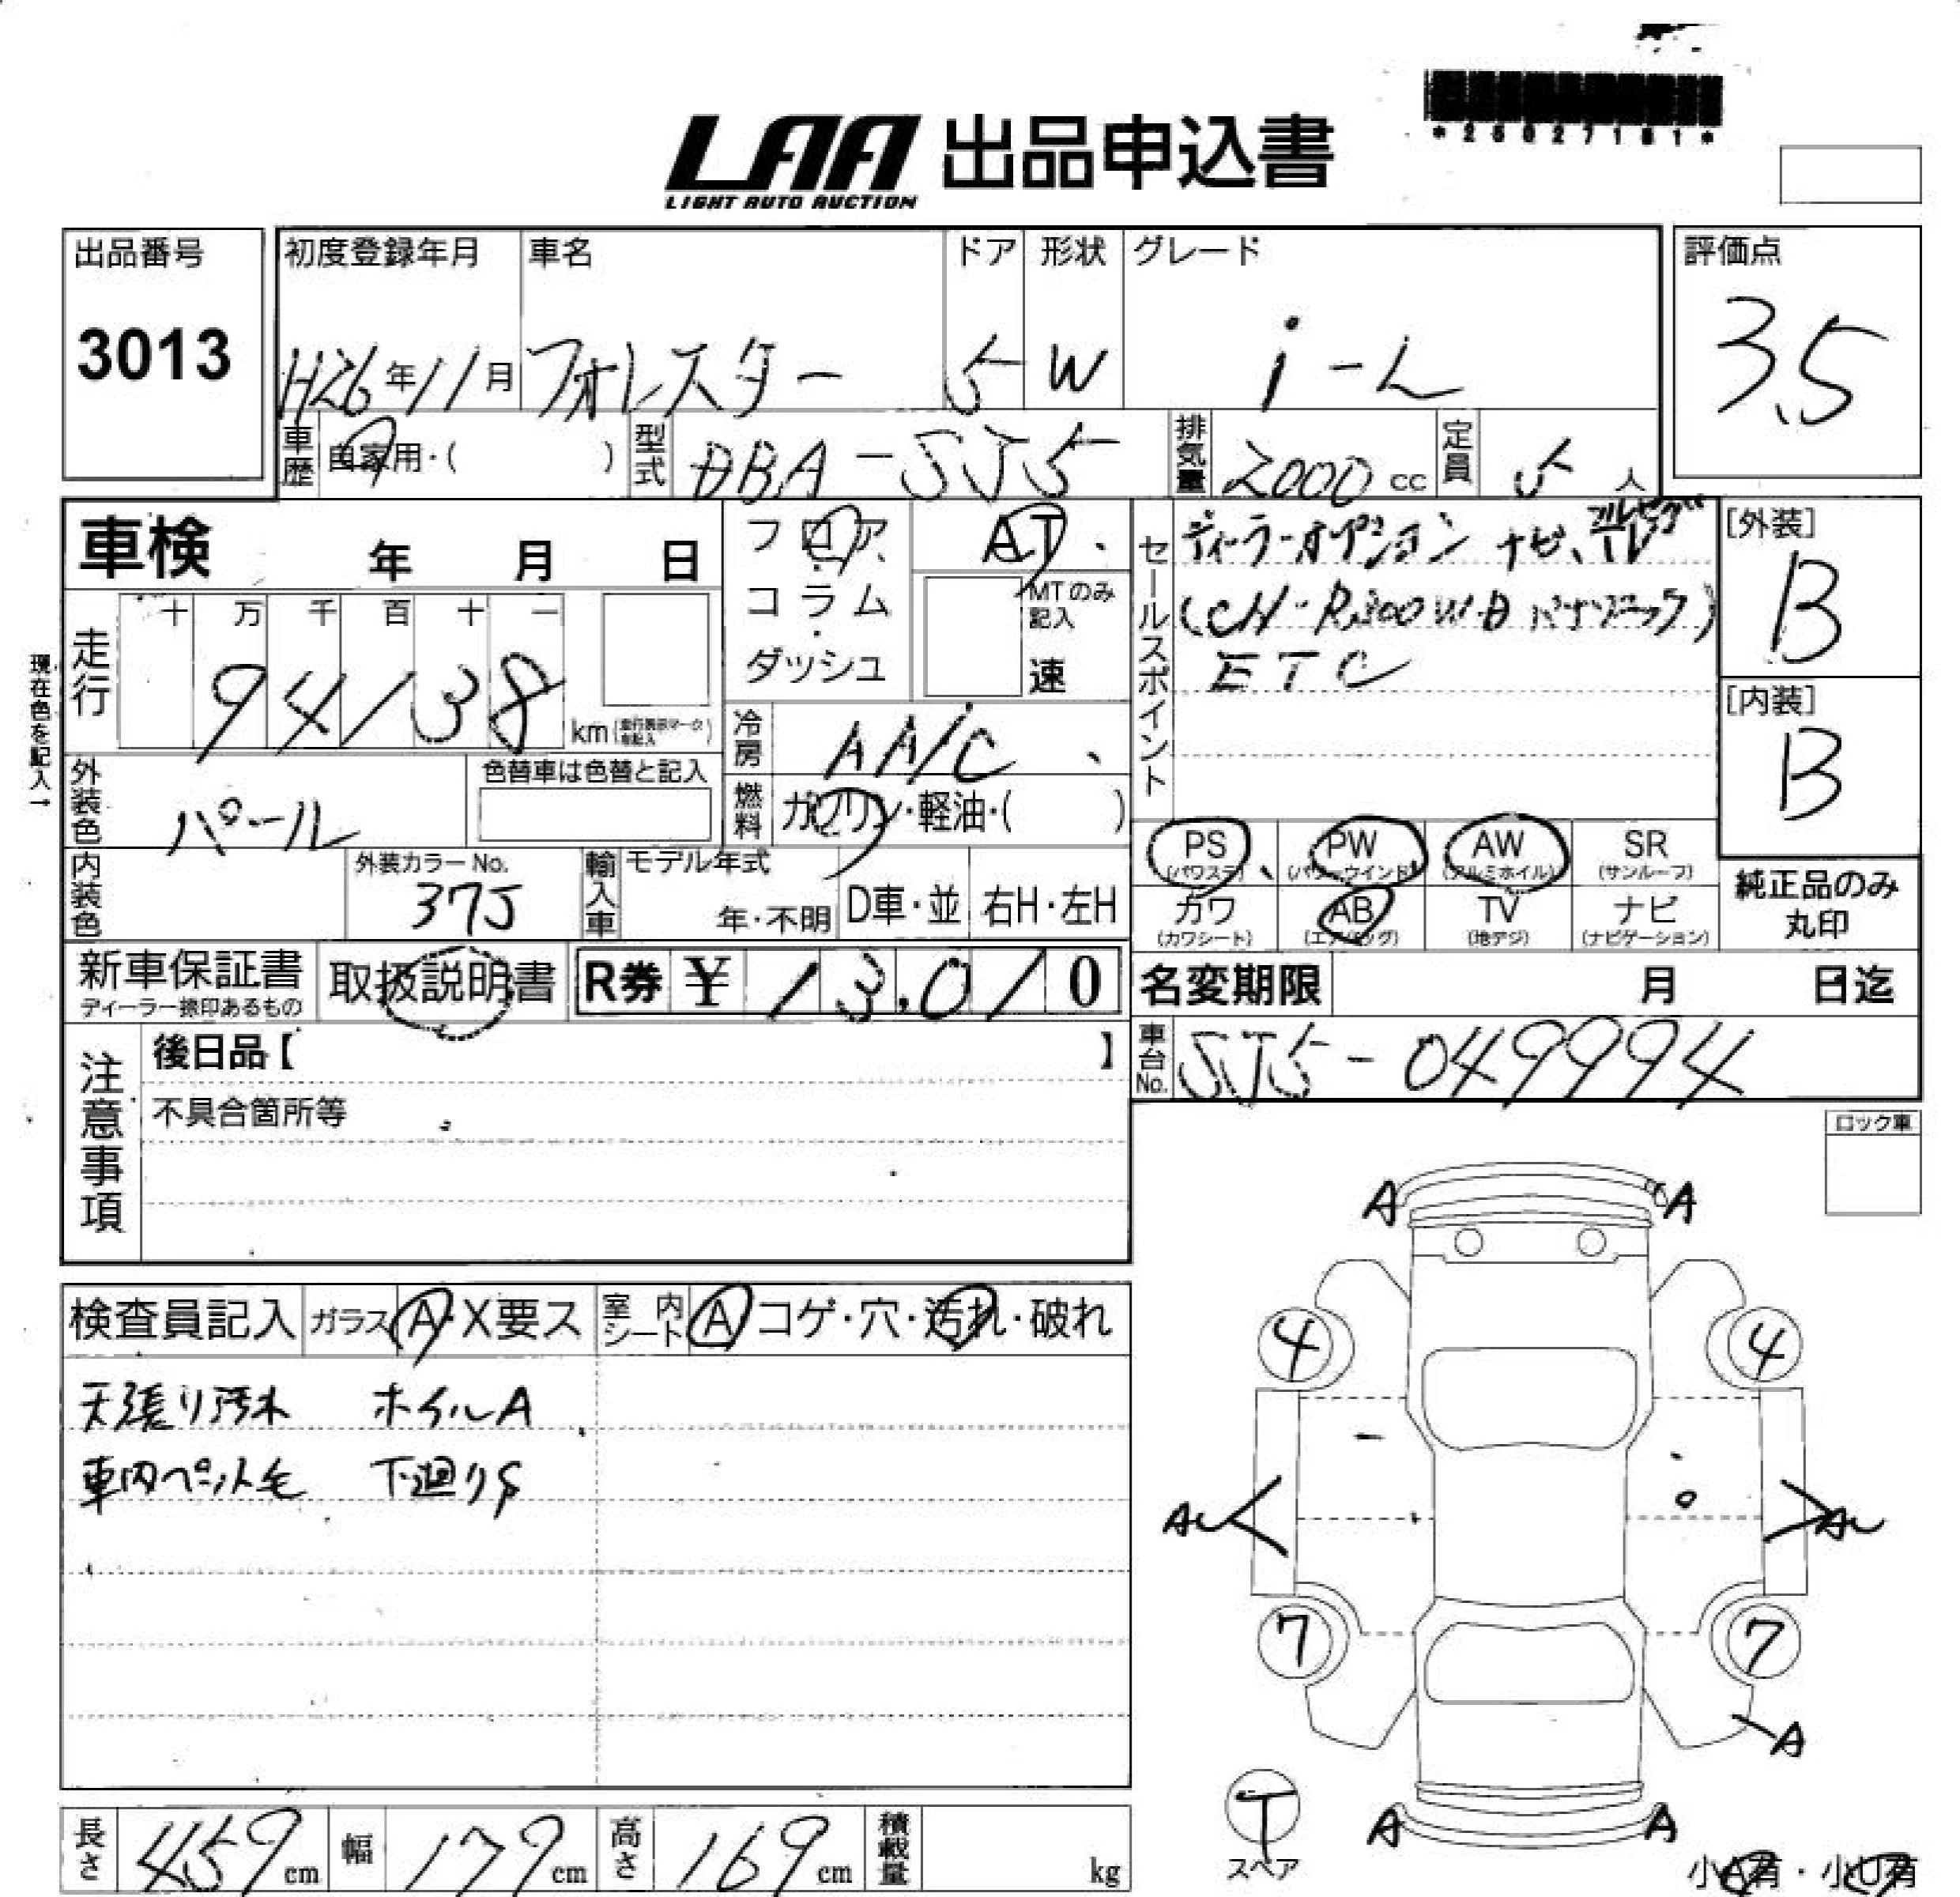 *25027181*
LAA 出品申込書
LIGHT AUTO AUCTION
出品番号
3013
初度登録年月 車名 ドア 形状 グレード
H26年11月 フォレスター 5 W i-L
評価点
3.5
車歴 自家用・( ) 型式 DBA-SJ5 排気量 2000cc 定員 5人
車検 年 月 日
フロア・
コラム・
ダッシュ
AT・
MTのみ記入
速
セールスポイント
ディーラーオプション ナビ、フルセグTV
(CN-R300WD パナソニック)
ETC
[外装]
B
[内装]
B
現在色を記入→
走行 十 万 千 百 十 一
94138 km
冷房 AA/C、
外装色 パール
色替車は色替と記入
燃料 ガソリン・軽油・( )
内装色
外装カラーNo.
37J
輸入車 モデル年式
年・不明 D車・並 右H・左H
PS (パワステ) PW (パワーウインド) AW (アルミホイル) SR (サンルーフ)
カワ (カワシート) AB (エアバッグ) TV (地デジ) ナビ (ナビゲーション)
純正品のみ
丸印
新車保証書
ディーラー捺印あるもの
取扱説明書 R券 ¥ 13,010
名変期限 月 日迄
車台No. SJ5-049994
注意事項
後日品【 】
不具合箇所等
ロック車
検査員記入 ガラス A・X要ス 室内シート A コゲ・穴・汚れ・破れ
天張り汚れ ホイルA
車内ペット毛 下廻りS
A A
4 4
AU AU
7 7
A
A A
T
スペア
小A有・小U有
長さ 459cm 幅 179cm 高さ 169cm 積載量 kg